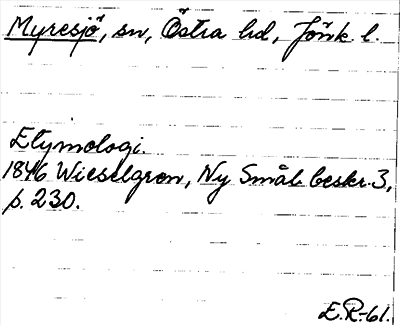 Myresjö, sn, Östra hd, Jönk. l.
Etymologi.
1846 Wieselgren, Ny Smål. beskr. 3,
p. 230.
E.R.-61.